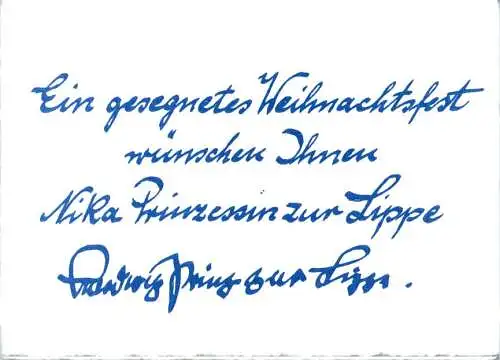 Ein gesegnetes Weihnachtsfest
wünschen Ihnen
Nika Prinzessin zur Lippe
Ludwig Prinz zur Lippe.